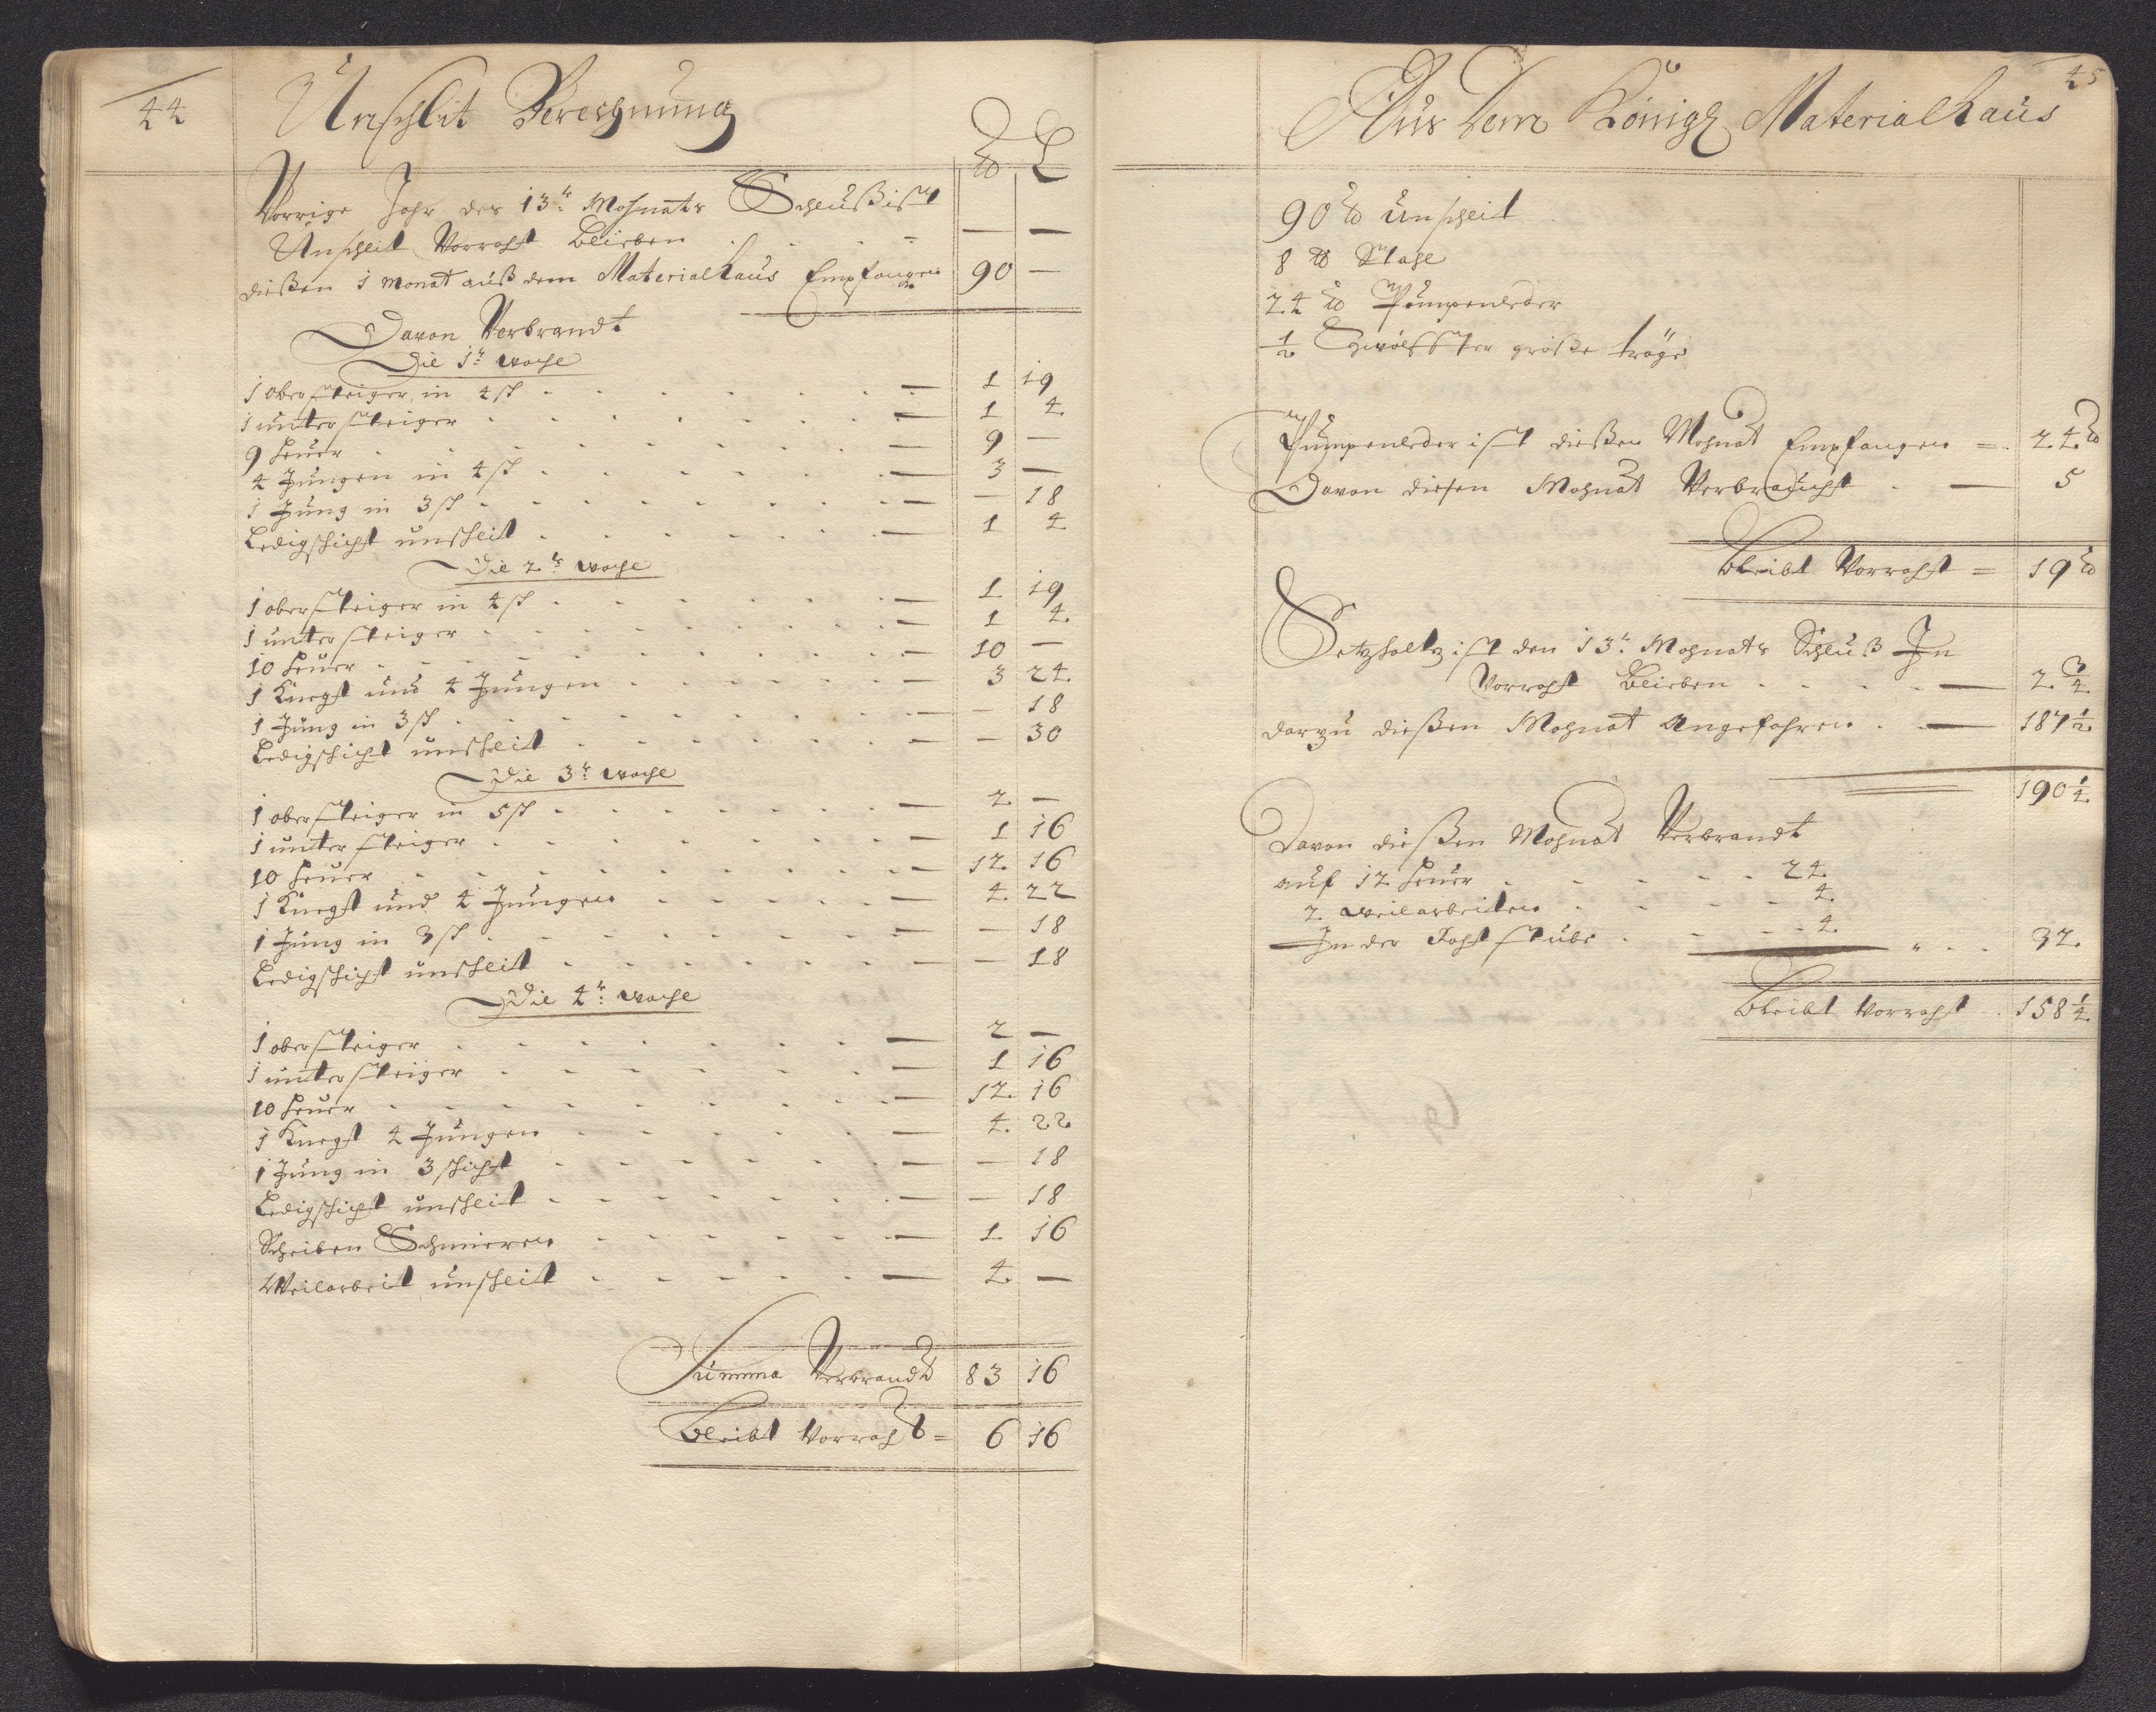 44
Unschlit Berechnung
℔ L
Vorrige Jahr des 13tr Mohnats Schluß ist
Unschlit Vorraht Blieben — —
dießen 1 Monat auß dem Materialhaus Empfangen 90 —
Davon Verbrandt
Die 1tr woche
1 obersteiger in 4 sch — 1 19
1 untersteiger — 1 4
9 heuer — 9 —
4 Jungen in 4 sch — 3 —
1 Jung in 3 sch — — 18
Ledigschicht unschlit — 1 4
Die 2tr woche
1 obersteiger in 4 sch — 1 19
1 untersteiger — 1 4
10 heuer — 10 —
1 Knecht und 4 Jungen — 3 24
1 Jung in 3 sch — — 18
Ledigschicht unschlit — — 30
Die 3tr woche
1 obersteiger in 5 sch — 2 —
1 untersteiger — 1 16
10 heuer — 12 16
1 Knecht und 4 Jungen — 4 22
1 Jung in 3 sch — — 18
Ledigschicht unschlit — — 18
Die 4tr woche
1 obersteiger — 2 —
1 untersteiger — 1 16
10 heuer — 12 16
1 Knecht 4 Jungen — 4 22
1 Jung in 3 schicht — — 18
Ledigschicht unschlit — — 18
Scheiben Schmieren — 1 16
Weilarbeit unschlit — 4 —
Summa Verbrandt 83 16
Bleibt Vorraht = 6 16
45
Aus dem Königl Materialhaus
90 ℔ unschlit
8 ℔ Stahl
24 ℔ Pumpenleder
1/2 Zwölffter große tröge
Pumpenleder ist dießen Mohnat Empfangen = 24 ℔
Davon diesen Mohnat Verbraucht — 5
Bleibt Vorraht = 19 ℔
Setzholtz ist den 13tr Mohnats Schluß In
Vorraht Blieben — 2 3/4
darzu dießen Mohnat Angefahren — 187 1/2
190 1/4
Davon dießen Mohnat Verbrandt
auf 12 heuer 24
2 weilarbeiten 4
In der stube 4 32
Bleibt Vorraht 158 1/4